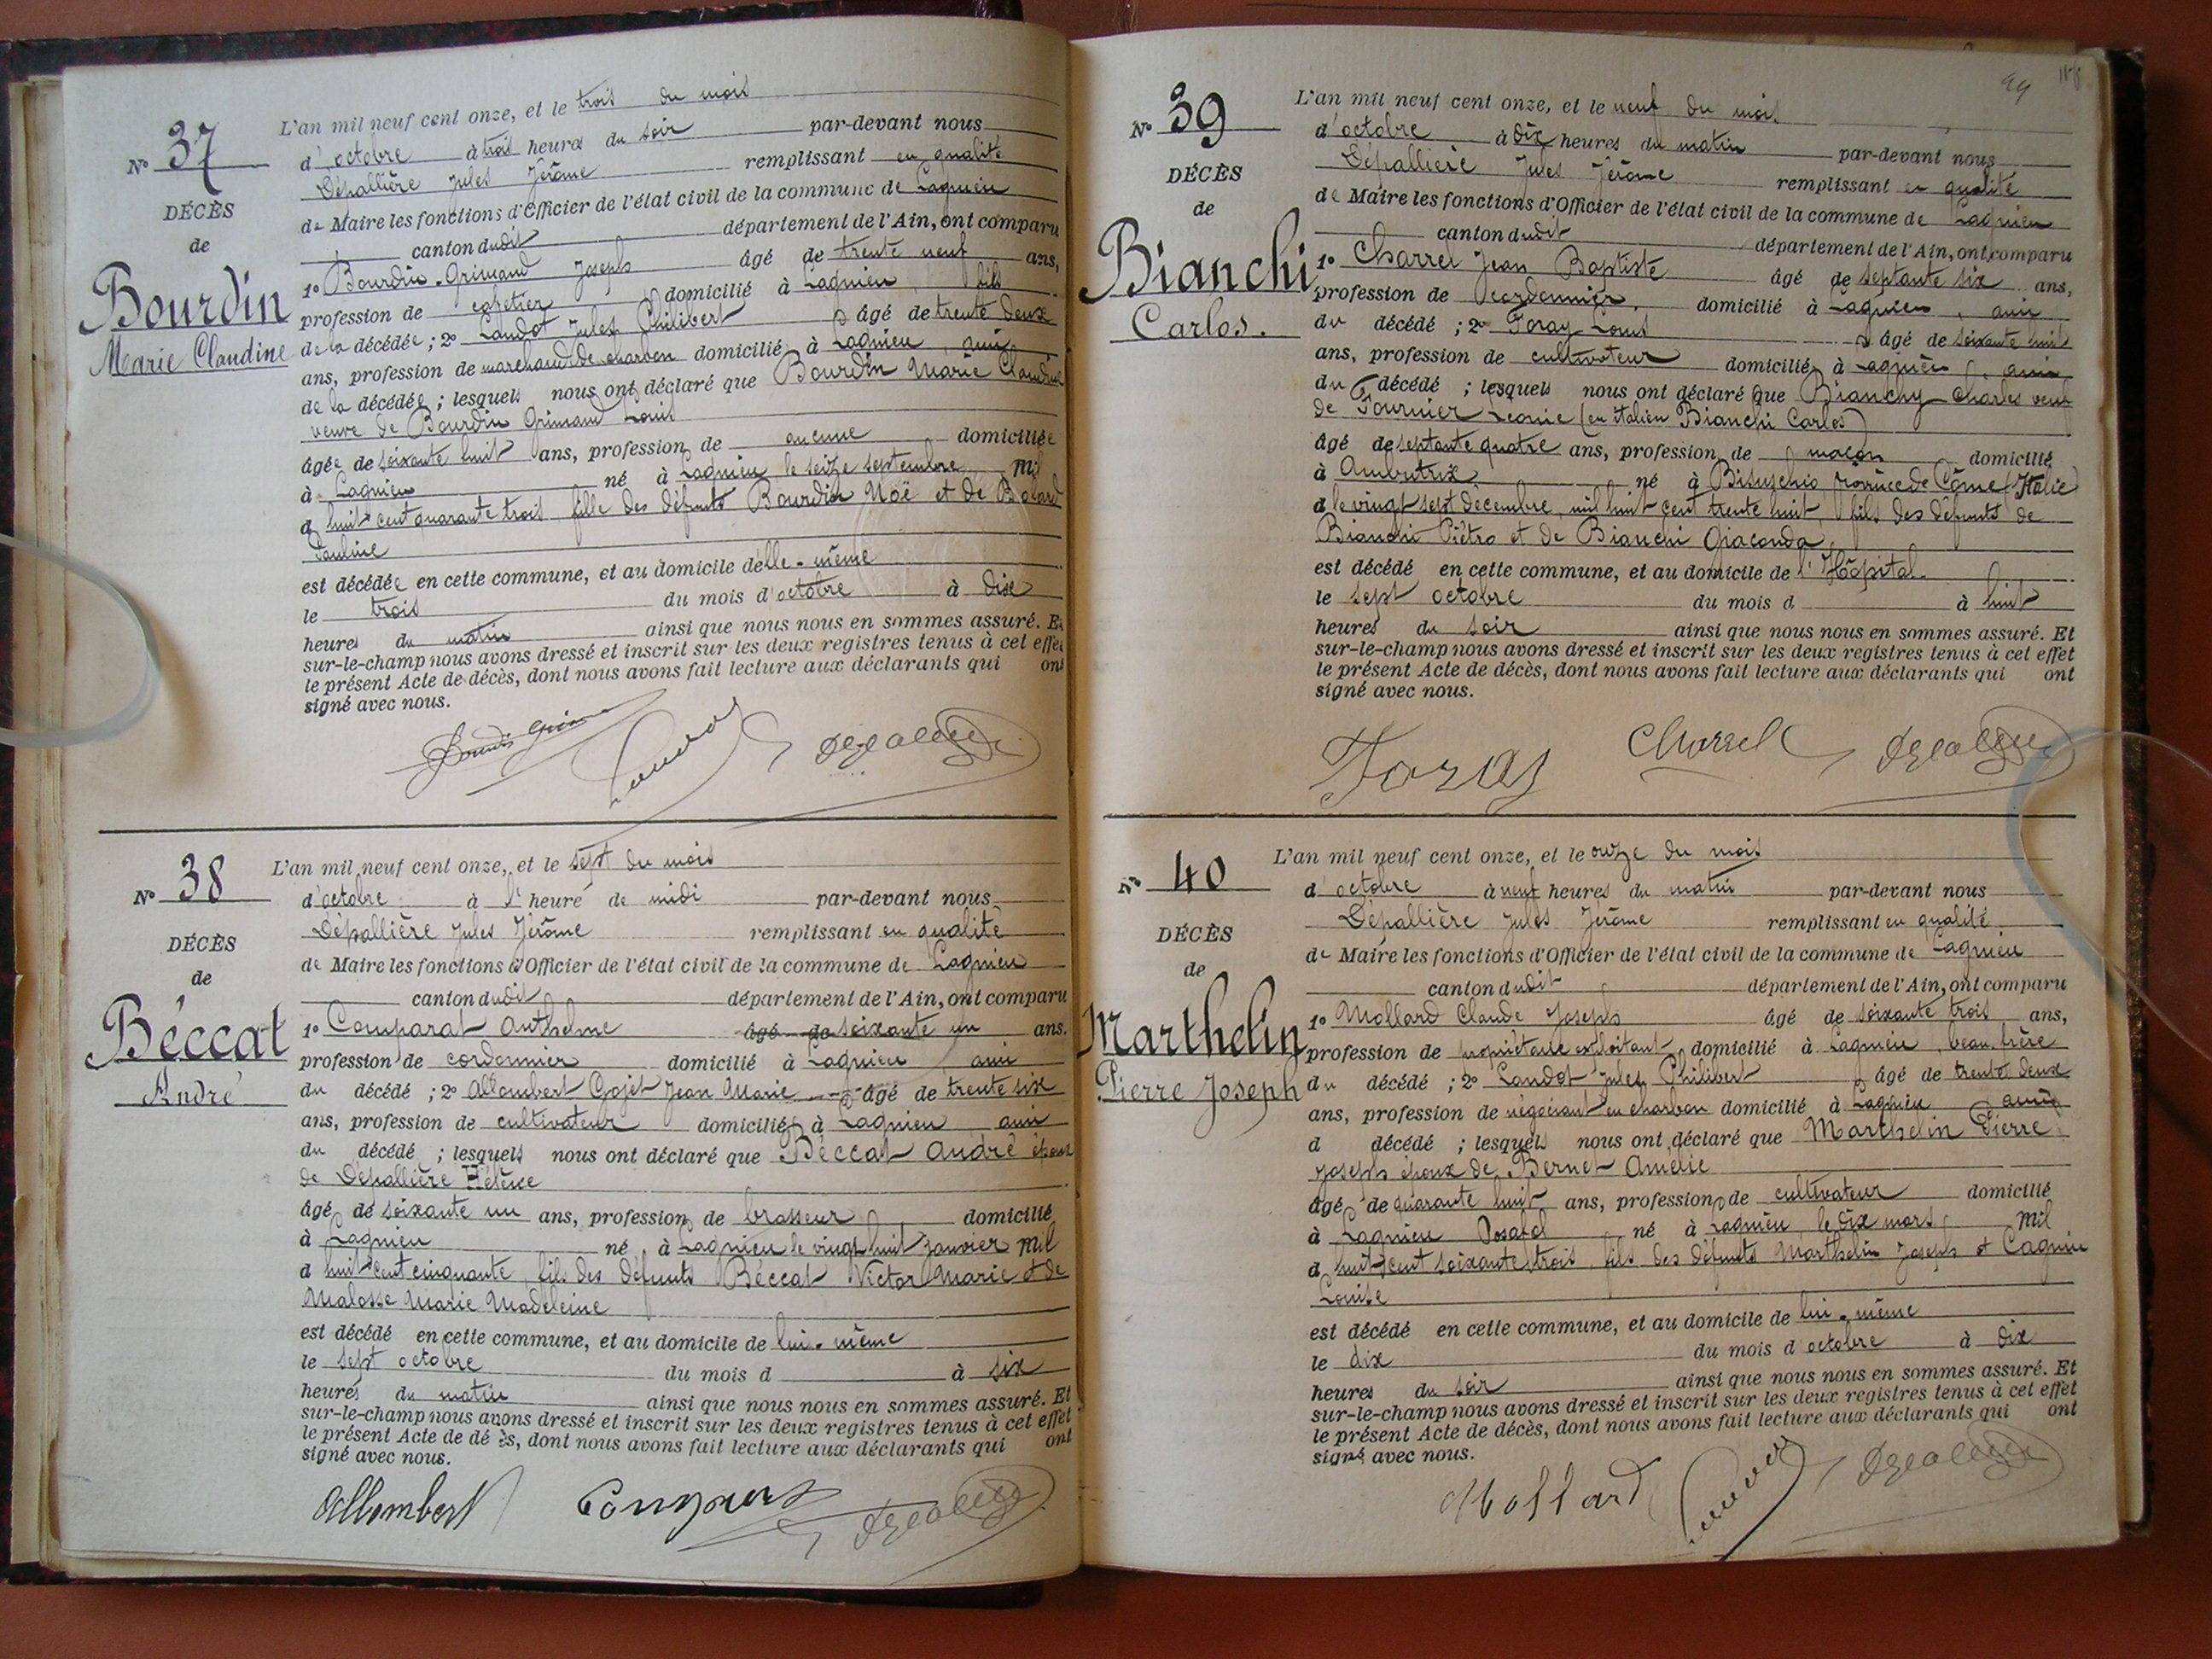 Nº 37
DÉCÈS
de
Bourdin
Marie Claudine
L'an mil neuf cent onze, et le trois du mois
d'octobre à trois heures du soir par-devant nous
Dépallière Jules Jérôme remplissant en qualité
de Maire les fonctions d'Officier de l'état civil de la commune de Lagnieu
canton dudit département de l'Ain, ont comparu
1º Bourdin-Grimaud Joseph âgé de trente neuf ans,
profession de cafetier domicilié à Lagnieu, fils
de la décédée; 2º Landot Jules Philibert âgé de trente deux
ans, profession de marchand de charbon domicilié à Lagnieu, ami
de la décédée; lesquels nous ont déclaré que Bourdin Marie Claudine
veuve de Bourdin Grimaud Louis
âgée de soixante huit ans, profession de aucune domiciliée
à Lagnieu né à Lagnieu le seize septembre mil
d huit cent quarante trois fille des défunts Bourdin Noë et de Bolard
Pauline
est décédée en cette commune, et au domicile d'elle-même
le trois du mois d'octobre à dix
heures du matin ainsi que nous nous en sommes assuré. Et
sur-le-champ nous avons dressé et inscrit sur les deux registres tenus à cet effet
le présent Acte de décès, dont nous avons fait lecture aux déclarants qui ont
signé avec nous.
Nº 38
DÉCÈS
de
Béccat
André
L'an mil neuf cent onze, et le sept du mois
d'octobre à l'heure de midi par-devant nous
Dépallière Jules Jérôme remplissant en qualité
de Maire les fonctions d'Officier de l'état civil de la commune de Lagnieu
canton dudit département de l'Ain, ont comparu
1º Comparat Anthelme âgé de soixante un ans.
profession de cordonnier domicilié à Lagnieu ami
du décédé; 2º Allombert Gojet Jean Marie âgé de trente six
ans, profession de cultivateur domicilié à Lagnieu ami
du décédé; lesquels nous ont déclaré que Béccat André époux
de Dépallière Hélène
âgé de soixante un ans, profession de brasseur domicilié
à Lagnieu né à Lagnieu le vingt huit janvier mil
d huit cent cinquante, fils des défunts Béccat Victor Marie et de
Malosse Marie Madeleine
est décédé en cette commune, et au domicile de lui-même
le sept octobre du mois d à six
heures du matin ainsi que nous nous en sommes assuré. Et
sur-le-champ nous avons dressé et inscrit sur les deux registres tenus à cet effet
le présent Acte de dé ès, dont nous avons fait lecture aux déclarants qui ont
signé avec nous.
Allombert
99
Nº 39
DÉCÈS
de
Bianchi
Carlos.
L'an mil neuf cent onze, et le neuf du mois
d'octobre à dix heures du matin par-devant nous
Dépallière Jules Jérôme remplissant en qualité
de Maire les fonctions d'Officier de l'état civil de la commune de Lagnieu
canton dudit département de l'Ain, ont comparu
1º Charrel Jean Baptiste âgé de septante six ans,
profession de cordonnier, domicilié à Lagnieu, ami
du décédé; 2º Foray Louis âgé de soixante huit
ans, profession de cultivateur domicilié à Lagnieu, ami
du décédé; lesquels nous ont déclaré que Bianchy Charles veuf
de Fournier Leonie (en italien Bianchi Carlos)
âgé de septante quatre ans, profession de maçon domicilié
à Ambutrix, né à Bisuschio province de Côme (Italie)
d le vingt sept decembre, mil huit cent trente huit, fils des défunts de
Bianchi Piétro et de Bianchi Giaconda,
est décédé en cette commune, et au domicile de l'Hôpital
le sept octobre du mois d à huit
heures du soir ainsi que nous nous en sommes assuré. Et
sur-le-champ nous avons dressé et inscrit sur les deux registres tenus à cet effet
le présent Acte de décès, dont nous avons fait lecture aux déclarants qui ont
signé avec nous.
Foray Charrel
Nº 40
DÉCÈS
de
Marthelin
Pierre Joseph
L'an mil neuf cent onze, et le onze du mois
d'octobre à neuf heures du matin par-devant nous
Dépallière Jules Jérôme remplissant en qualité
de Maire les fonctions d'Officier de l'état civil de la commune de Lagnieu
canton dudit département de l'Ain, ont comparu
1º Mollard Claude Joseph âgé de soixante trois ans,
profession de propriétaire exploitant domicilié à Lagnieu, beau-frère
du décédé; 2º Landot Jules Philibert âgé de trente deux
ans, profession de négociant en charbon domicilié à Lagnieu ami
d décédé; lesquels nous ont déclaré que Marthelin Pierre
Joseph époux de Bernet Amélie
âgé de quarante huit ans, profession de cultivateur domicilié
à Lagnieu Posafol né à Lagnieu le dix mars mil
d huit cent soixante trois fils des défunts Marthelin Joseph et Cagnin
Louise
est décédé en cette commune, et au domicile de lui-même
le dix du mois d'octobre à dix
heures du soir ainsi que nous nous en sommes assuré. Et
sur-le-champ nous avons dressé et inscrit sur les deux registres tenus à cet effet
le présent Acte de décès, dont nous avons fait lecture aux déclarants qui ont
signé avec nous.
Mollard